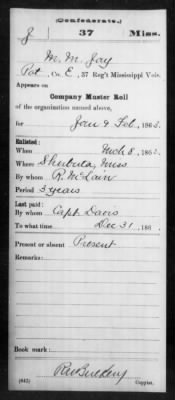 (Confederate.)
J 37 Miss.
M. M. Jay
Pvt, Co. E, 37 Reg't Mississippi Vols.
Appears on
Company Muster Roll
of the organization named above,
for Jan & Feb, 1863.
Enlisted:
When Mch 8, 1862.
Where Shubuta, Miss
By whom R. McLain
Period 3 years
Last paid:
By whom Capt. Davis
To what time Dec 31, 186
Present or absent Present
Remarks:
Book mark:
(642) Copyist.